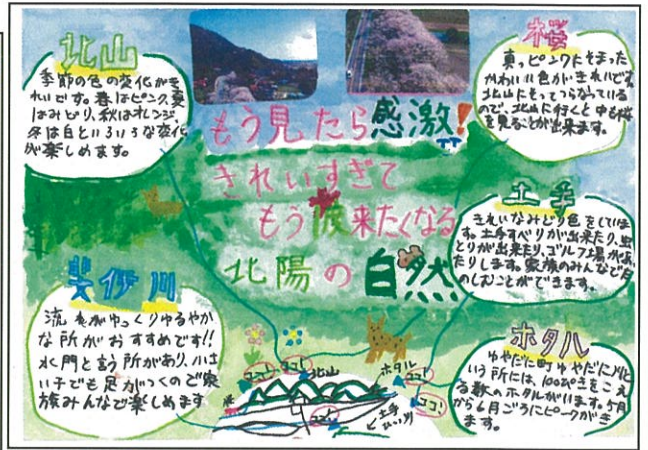 北山
季節の色の変化がき
れいです。春はピンク、夏
はみどり、秋はオレンジ、
冬は白といろいろな変化
が楽しめます。
桜
真っピンクにそまった
かわいい色がきれいです。
北山にそってつらなっている
ので、北山に行くと中も桜
を見ることが出来ます。
もう見たら感激!
きれいすぎて
もう一度来たくなる
北陽の自然
土手
きれいなみどり色をしていま
す。土手すべりが出来たり、虫
とりが出来たり、ゴルフ場があっ
たりします。家族のみんなでた
のしむことができます。
斐伊川
流れがゆっくりゆるやか
な所がおすすめです!!
水門と言う所があり、小さ
い子でも足がつくのでご家
族みんなで楽しめます
ホタル
ゆやだに町ゆやだに川と
いう所には、100ぴきをこえ
る数のホタルがいます。5月
から6月ごろにピークがき
ます。
ココ!
ココ!
北山
ホタル
ココ!
ココ!
土手